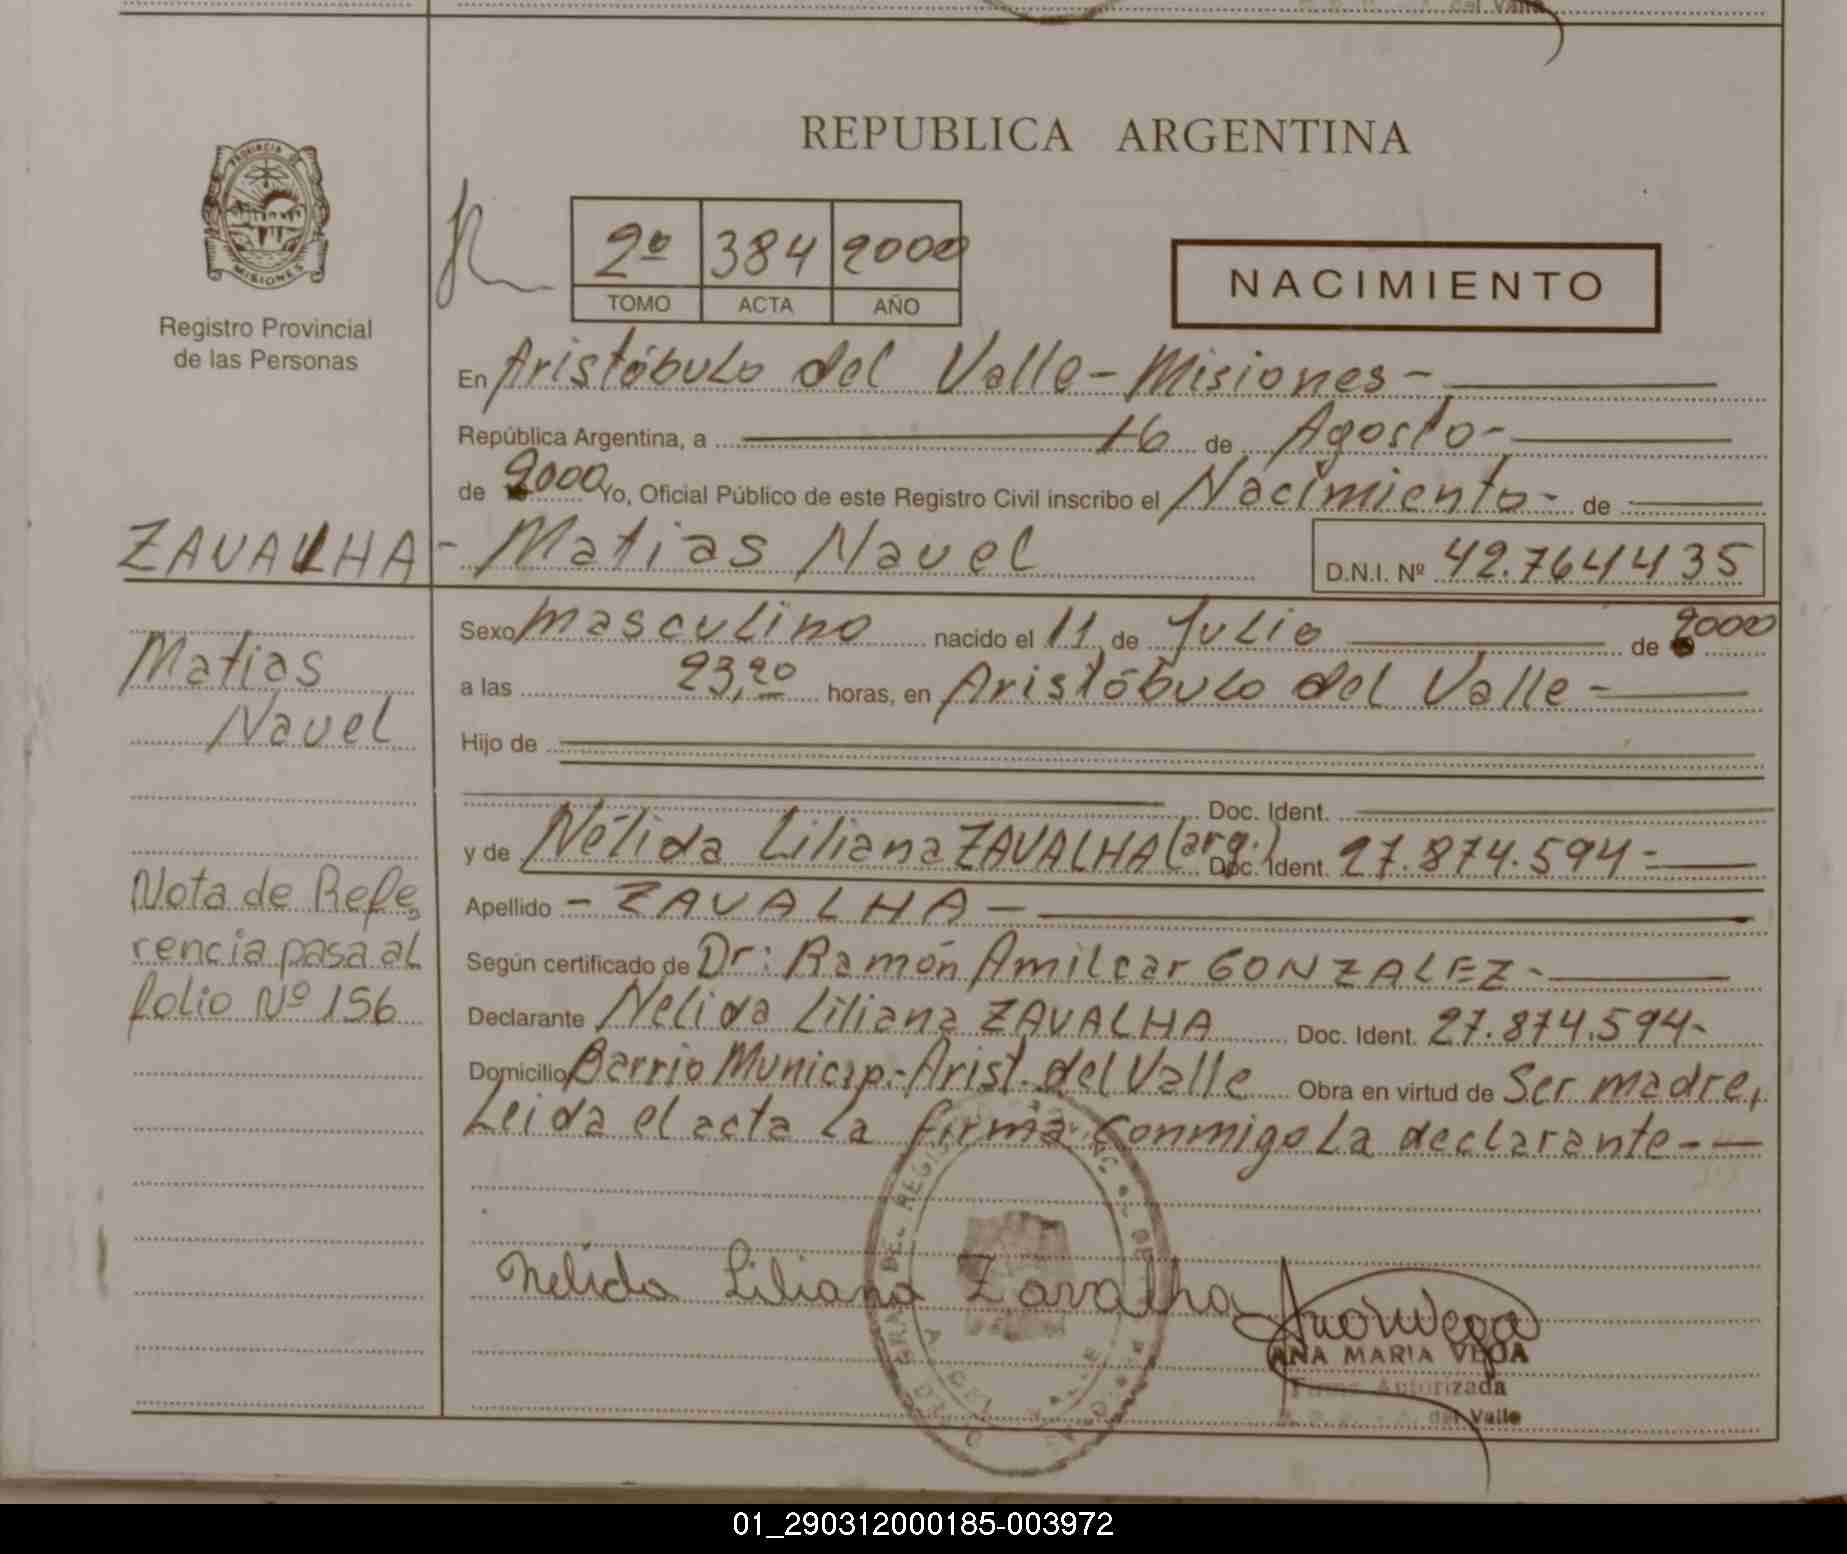 del Valle
REPUBLICA ARGENTINA
PROVINCIA DE
MISIONES
Registro Provincial
de las Personas
2º 384 2000
TOMO ACTA AÑO
NACIMIENTO
En Aristóbulo del Valle - Misiones -
República Argentina, a 16 de Agosto -
de 2000 Yo, Oficial Público de este Registro Civil inscribo el Nacimiento - de
ZAVALHA - Matias Nauel D.N.I. Nº 42.764435
Sexo masculino nacido el 11 de Julio de 2000
Matias
a las 23,20 horas, en Aristóbulo del Valle -
Nauel
Hijo de
Doc. Ident.
y de Nélida Liliana ZAVALHA (arg.) Doc. Ident. 27.874.594 -
Nota de Refe
Apellido - ZAVALHA -
rencia pasa al
Según certificado de Dr: Ramón Amilcar GONZALEZ -
folio Nº 156
Declarante Nelida Liliana ZAVALHA Doc. Ident. 27.874.594 -
Domicilio Barrio Municip. - Arist. del Valle Obra en virtud de Ser madre,
Leida el acta la firma conmigo la declarante - -
Nelida Liliana Zavalha
ANA MARIA VEGA
Firma Autorizada
del Valle
01_290312000185-003972